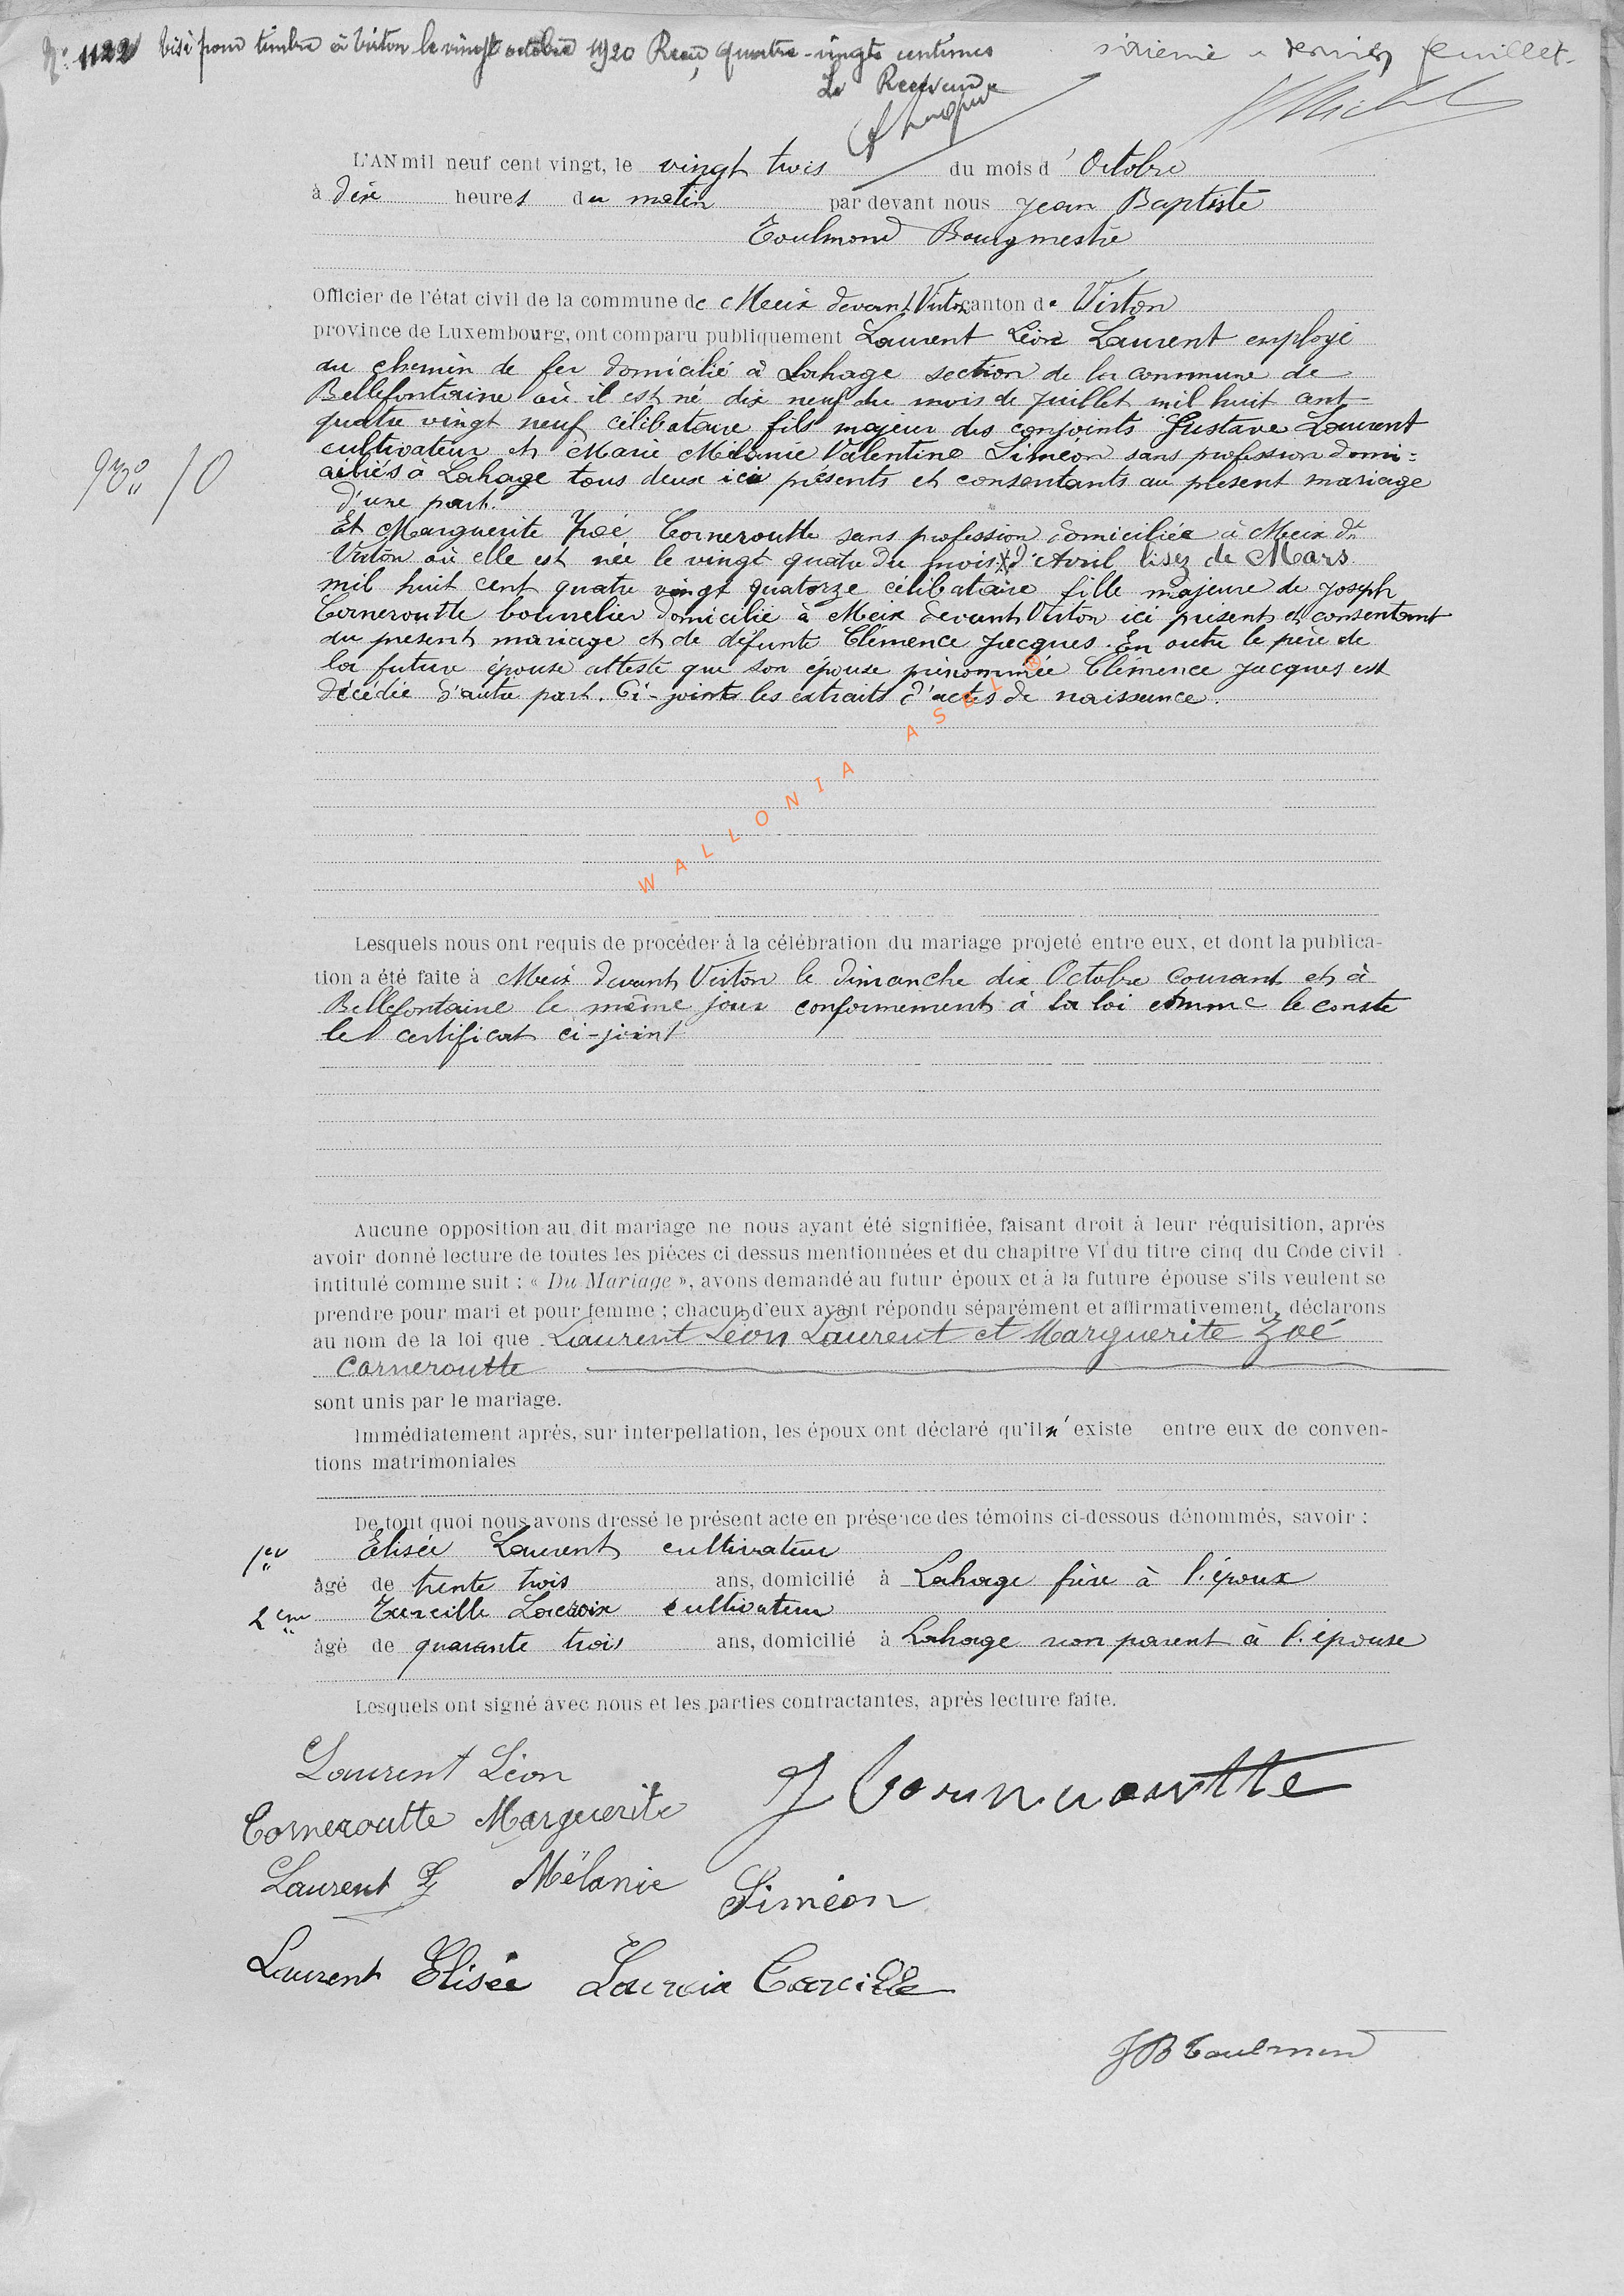 N° 1122 Visé pour timbre à Virton le vingt octobre 1920 Reçu quatre-vingts centimes
Le Receveur
sixième et dernier feuillet.
L'AN mil neuf cent vingt, le vingt trois du mois d'Octobre
à dix heures du matin par devant nous Jean Baptiste
Toulmond Bourgmestre
Officier de l'état civil de la commune de Meix devant Virton canton de Virton
province de Luxembourg, ont comparu publiquement Laurent Léon Laurent employé
au chemin de fer domicilié à Lahage section de la commune de
Bellefontaine où il est né dix neuf du mois de Juillet mil huit cent
quatre vingt neuf célibataire fils majeur des conjoints Gustave Laurent
cultivateur et Marie Mélanie Valentine Siméon sans profession domi=
ciliés à Lahage tous deux ici présents et consentants au présent mariage
N° 10
d'une part.
Et Marguerite Zoé Corneroutte sans profession domiciliée à Meix dt
Virton où elle est née le vingt quatre du mois d'Avril lisez de Mars
mil huit cent quatre vingt quatorze célibataire fille majeure de Joseph
Corneroutte bourrelier domicilié à Meix devant Virton ici présent et consentant
au présent mariage et de défunte Clémence Jacques. En outre le père de
la future épouse atteste que son épouse prénommée Clémence Jacques est
décédée d'autre part. Ci-joints les extraits d'actes de naissance.
WALLONIA ASBL ®
Lesquels nous ont requis de procéder à la célébration du mariage projeté entre eux, et dont la publica-
tion a été faite à Meix devant Virton le dimanche dix Octobre courant et à
Bellefontaine le même jour conformément à la loi comme le conste
le certificat ci-joint
Aucune opposition au dit mariage ne nous ayant été signifiée, faisant droit à leur réquisition, après
avoir donné lecture de toutes les pièces ci dessus mentionnées et du chapitre VI du titre cinq du Code civil
intitulé comme suit : « Du Mariage », avons demandé au futur époux et à la future épouse s'ils veulent se
prendre pour mari et pour femme ; chacun d'eux ayant répondu séparément et affirmativement, déclarons
au nom de la loi que Laurent Léon Laurent et Marguerite Zoé
Corneroutte
sont unis par le mariage.
Immédiatement après, sur interpellation, les époux ont déclaré qu'il n'existe entre eux de conven-
tions matrimoniales
De tout quoi nous avons dressé le présent acte en présence des témoins ci-dessous dénommés, savoir :
1er Elisée Laurent cultivateur
âgé de trente trois ans, domicilié à Lahage frère à l'époux
2em Lacroix cultivateur
âgé de quarante trois ans, domicilié à Lahage non parent à l'épouse
Lesquels ont signé avec nous et les parties contractantes, après lecture faite.
Laurent Léon
J Corneroutte
Corneroutte Marguerite
Laurent G Mélanie Siméon
Laurent Elisée Lacroix
JB Toulmond